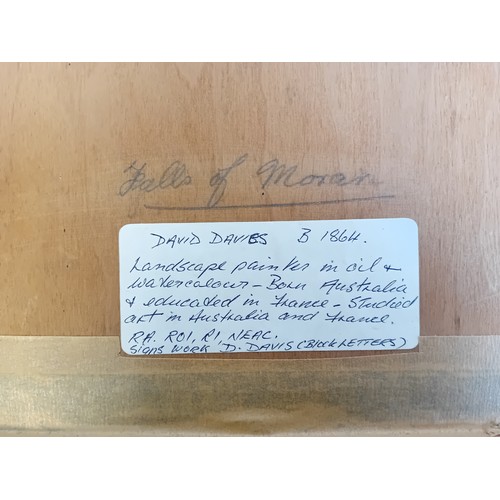 Falls of Moran
DAVID DAVIES B 1864.
Landscape painter in oil &
watercolour - Born Australia
& educated in France - Studied
art in Australia and France.
RA. ROI, RI, NEAC.
Signs work D. DAVIS (BLOCK LETTERS)